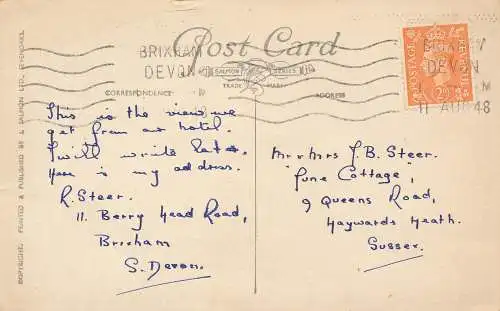 Post Card
BRIXHAM
DEVON
SALMON SERIES
TRADE MARK
CORRESPONDENCE
ADDRESS
DEVON
11 AUG 48
POSTAGE
REVENUE
This is the view we
get from our hotel.
I will write later.
Here is my address.
R. Steer.
11. Berry Head Road,
Brixham
S. Devon.
Mr & Mrs J. B. Steer.
"Pine Cottage",
9 Queens Road,
Haywards Heath.
Sussex.
COPYRIGHT. PRINTED & PUBLISHED BY J. SALMON LTD., SEVENOAKS.